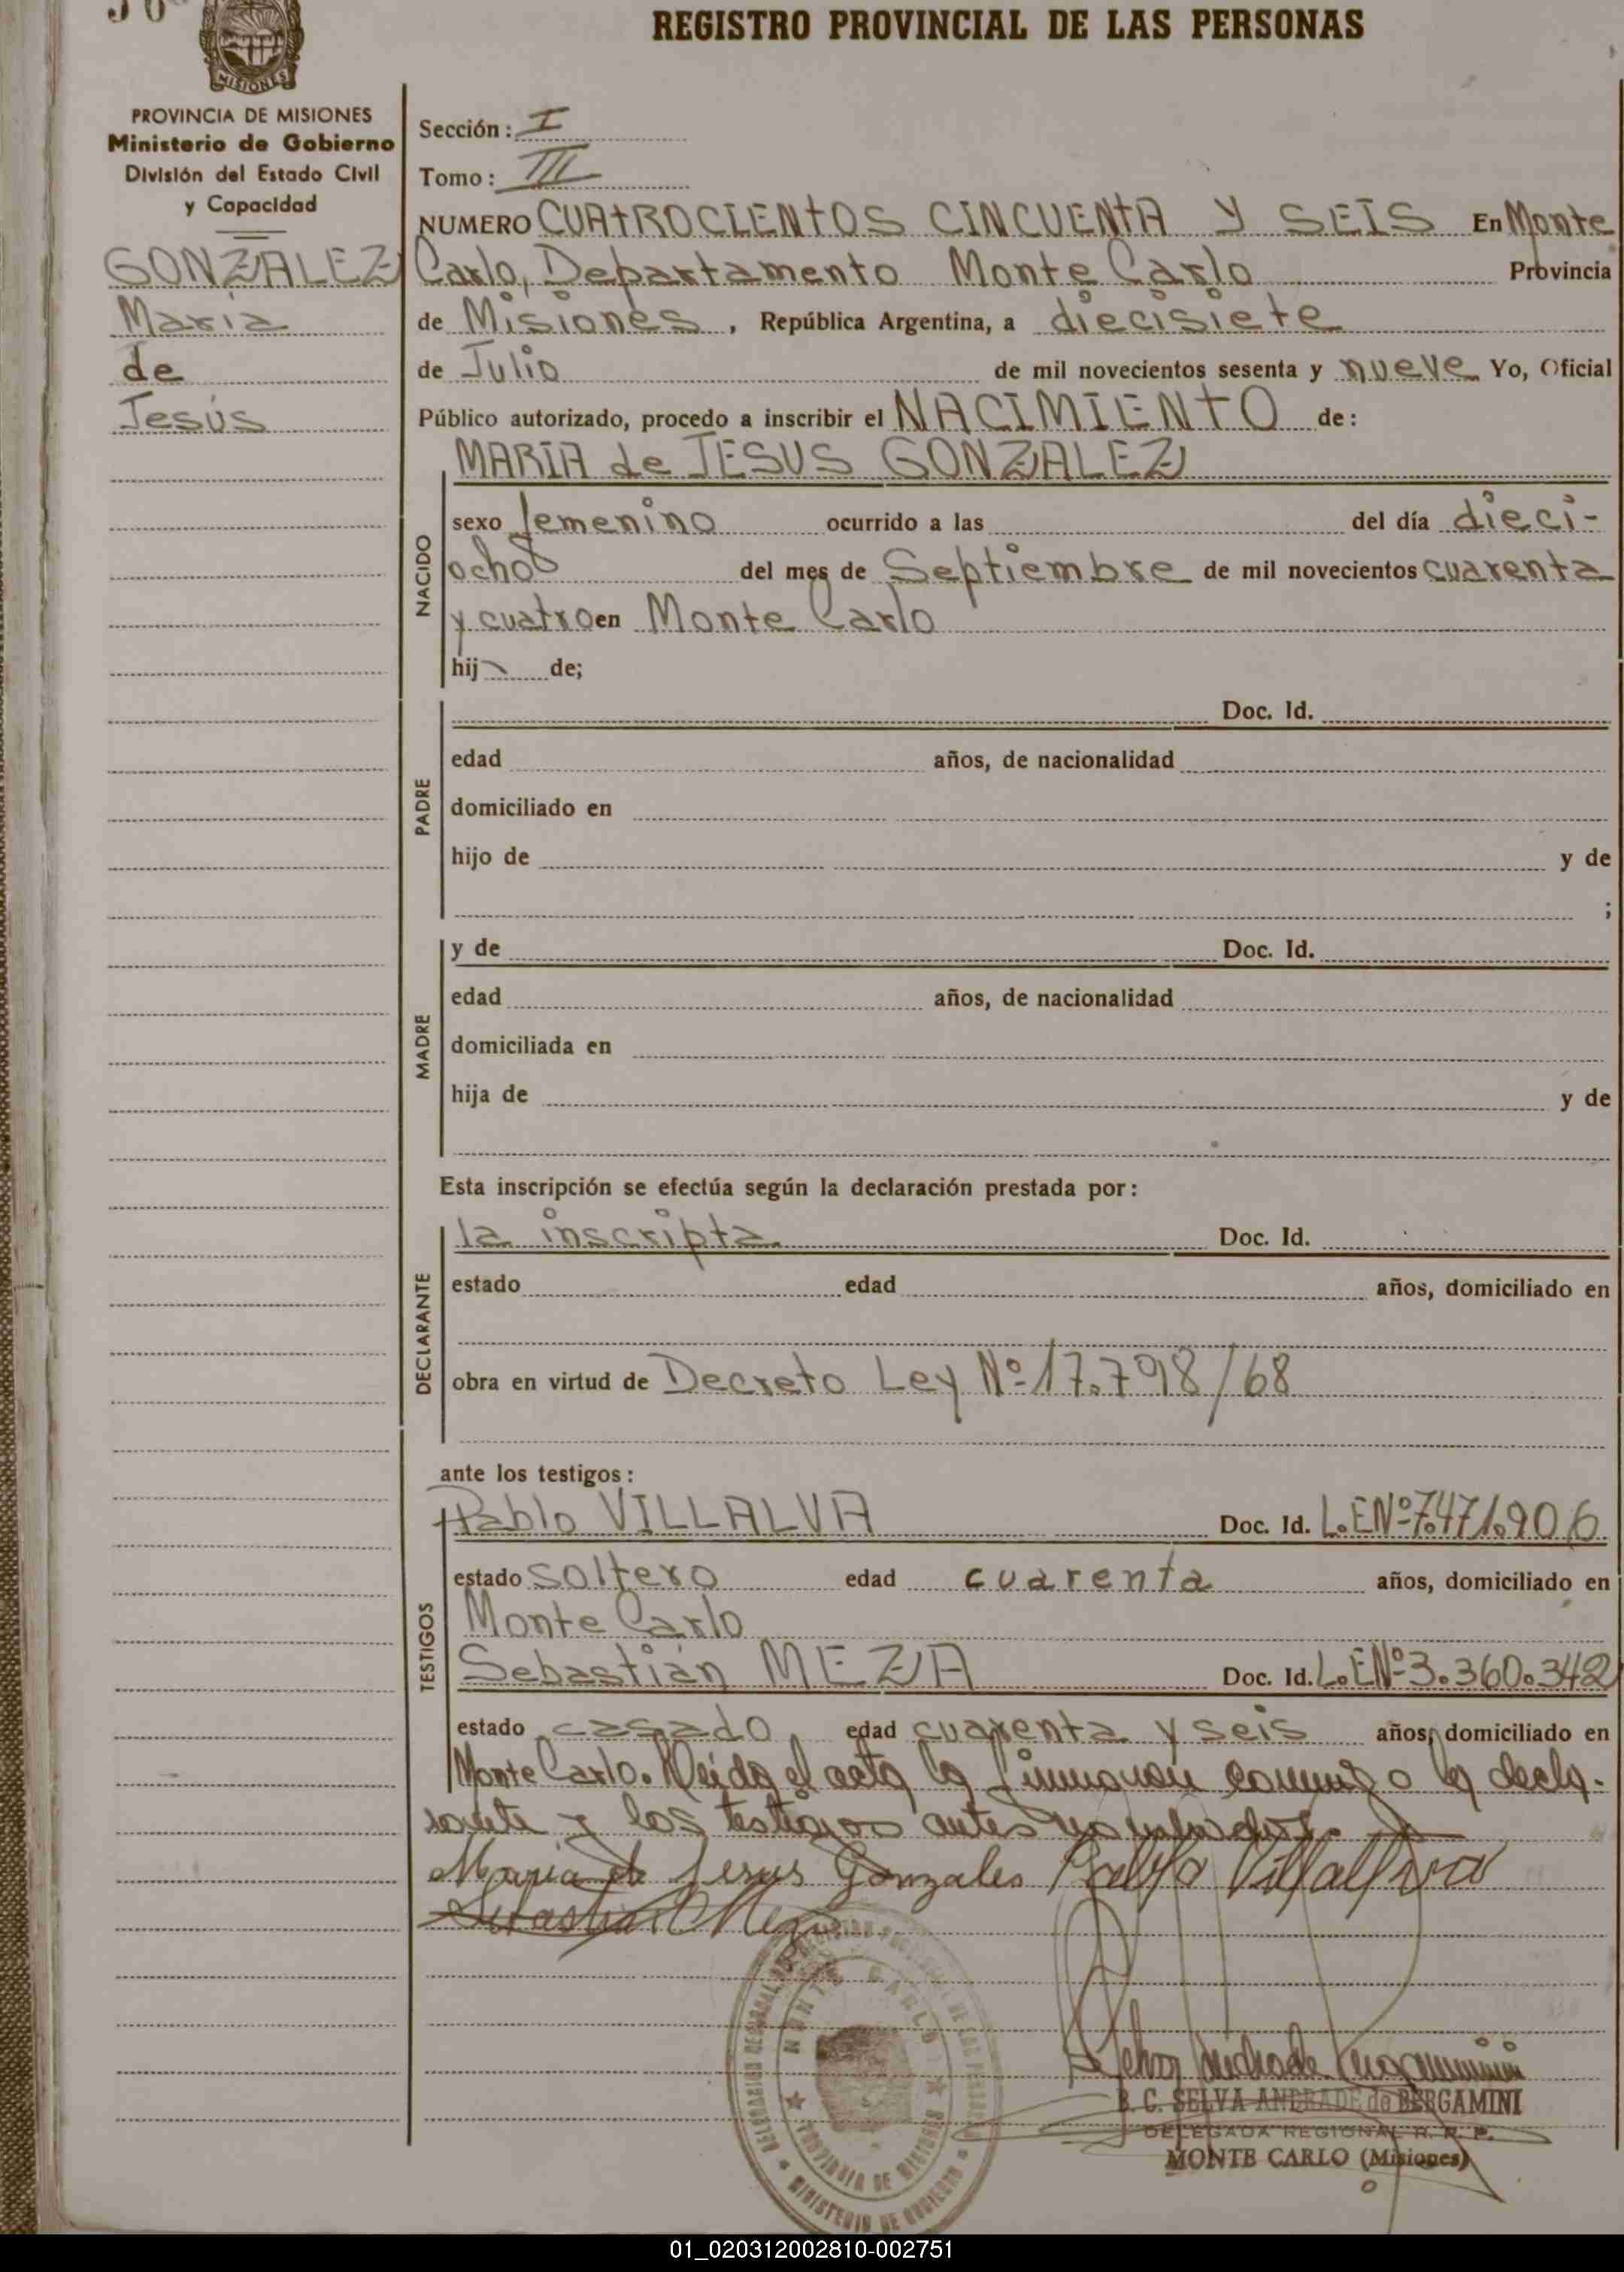 REGISTRO PROVINCIAL DE LAS PERSONAS
MISIONES
PROVINCIA DE MISIONES
Ministerio de Gobierno
División del Estado Civil
y Capacidad
GONZALEZ
María
de
Jesús
Sección: I
Tomo: III
NUMERO CUATROCIENTOS CINCUENTA Y SEIS En Monte
Carlo, Departamento Monte Carlo Provincia
de Misiones, República Argentina, a diecisiete
de Julio de mil novecientos sesenta y nueve Yo, Oficial
Público autorizado, procedo a inscribir el NACIMIENTO de:
NACIDO
MARIA de JESUS GONZALEZ
sexo femenino ocurrido a las del día dieci-
ocho del mes de Septiembre de mil novecientos cuarenta
y cuatro en Monte Carlo
hij de;
PADRE
Doc. Id.
edad años, de nacionalidad
domiciliado en
hijo de y de
;
MADRE
y de Doc. Id.
edad años, de nacionalidad
domiciliada en
hija de y de
Esta inscripción se efectúa según la declaración prestada por:
DECLARANTE
la inscripta Doc. Id.
estado edad años, domiciliado en
obra en virtud de Decreto Ley Nº 17.798/68
ante los testigos:
TESTIGOS
Pablo VILLALVA Doc. Id. L.E Nº 7.471.906
estado soltero edad cuarenta años, domiciliado en
Monte Carlo
Sebastián MEZA Doc. Id. L.E Nº 3.360.342
estado casado edad cuarenta y seis años, domiciliado en
Monte Carlo. Leída el acta la firmaron conmigo la decla-
rante y los testigos antes nombrados.
María de Jesus Gonzales Pablo Villalva
Sebastian Meza
MONTE CARLO
PROVINCIA DE MISIONES
MINISTERIO DE GOBIERNO
B. C. SELVA ANDRADE de BERGAMINI
DELEGADA REGIONAL R. P. P.
MONTE CARLO (Misiones)
01_020312002810-002751